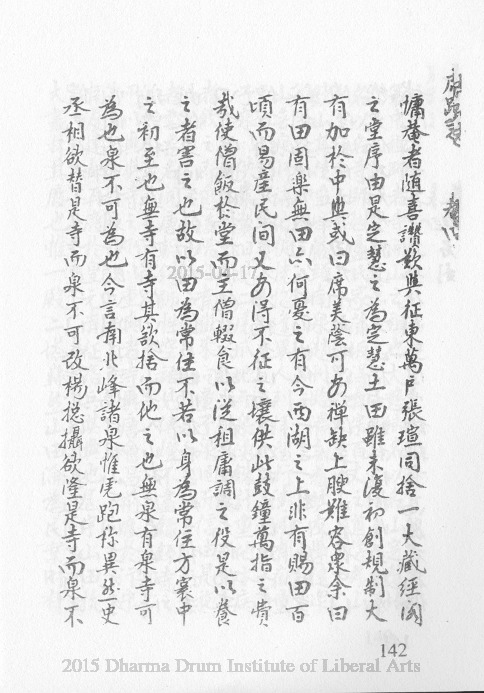 虎跑誌 卷四
慵菴者随喜讚歎與征東萬戶張瑄同捨一大藏經閣
之堂序由是定慧之為定慧土田雖未復初創規制大
有加於中興或曰席美蔭可如禪缺上腴難容眾余曰
有田固樂無田亦何憂之有今西湖之上非有賜田百
頃而易產民間又安得不征之壤供此鼓鐘萬指之費
哉使僧飯於堂而主僧輟食以從租庸調之役是以養
之者害之也故以田為常住不若以身為常住方寰中
之初至也無寺有寺其欲捨而他之也無泉有泉寺可
為也泉不可為也今言南北峰諸泉惟虎跑称異然史
丞相欲替是寺而泉不可改楊摠攝欲隆是寺而泉不
142
2015-04-17
2015 Dharma Drum Institute of Liberal Arts